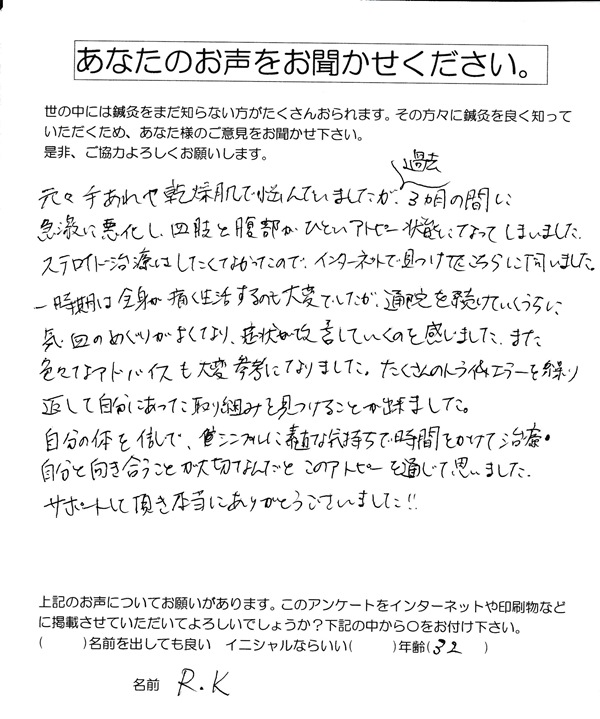 あなたのお声をお聞かせください。
世の中には鍼灸をまだ知らない方がたくさんおられます。その方々に鍼灸を良く知って
いただくため、あなた様のご意見をお聞かせ下さい。
是非、ご協力よろしくお願いします。
過去
元々手あれや乾燥肌で悩んでいましたが、3ヵ月の間に
急激に悪化し、四肢と腹部がひどいアトピー状態になってしまいました。
ステロイド治療はしたくなかったので、インターネットで見つけてこちらに伺いました。
一時期は全身が痛く生活するのも大変でしたが、通院を続けていくうちに
気・血のめぐりがよくなり、症状が改善していくのを感じました。また
色々なアドバイスも大変参考になりました。たくさんのトライ&エラーを繰り
返して自分にあった取り組みを見つけることが出来ました。
自分の体を信じて、シンプルに素直な気持ちで時間をかけて治療・
自分と向き合うことが大切なんだとこのアトピーを通じて思いました。
サポートして頂き本当にありがとうございました!!
上記のお声についてお願いがあります。このアンケートをインターネットや印刷物など
に掲載させていただいてよろしいでしょうか?下記の中から○をお付け下さい。
(　　)名前を出しても良い　イニシャルならいい(　　)年齢(32　)
名前　R.K